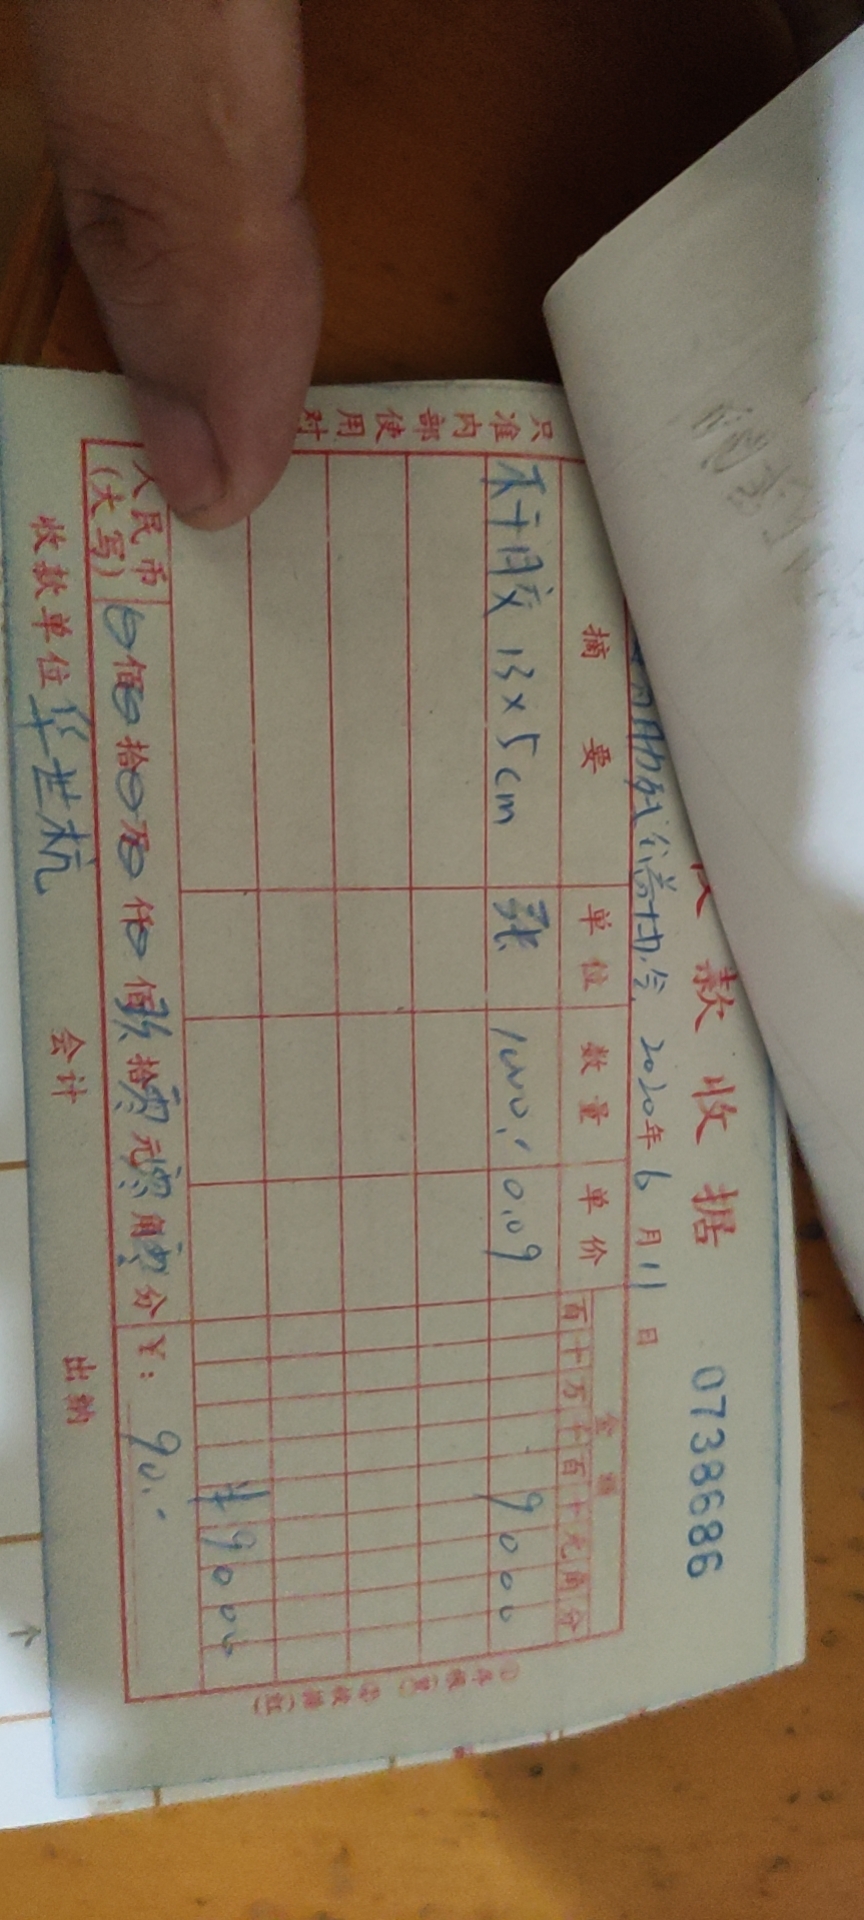 款收据
0738686
助残公益协会 2020年6月11日
摘要 单位 数量 单价 金额
百十万千百十元角分
不干胶 13×5cm 张 1000.- 0.09 9000
¥9000
人民币
(大写) 佰 拾 万 仟 佰 玖拾零元零角零分 ¥: 90.-
收款单位 华世杭 会计 出纳
只准内部使用 对